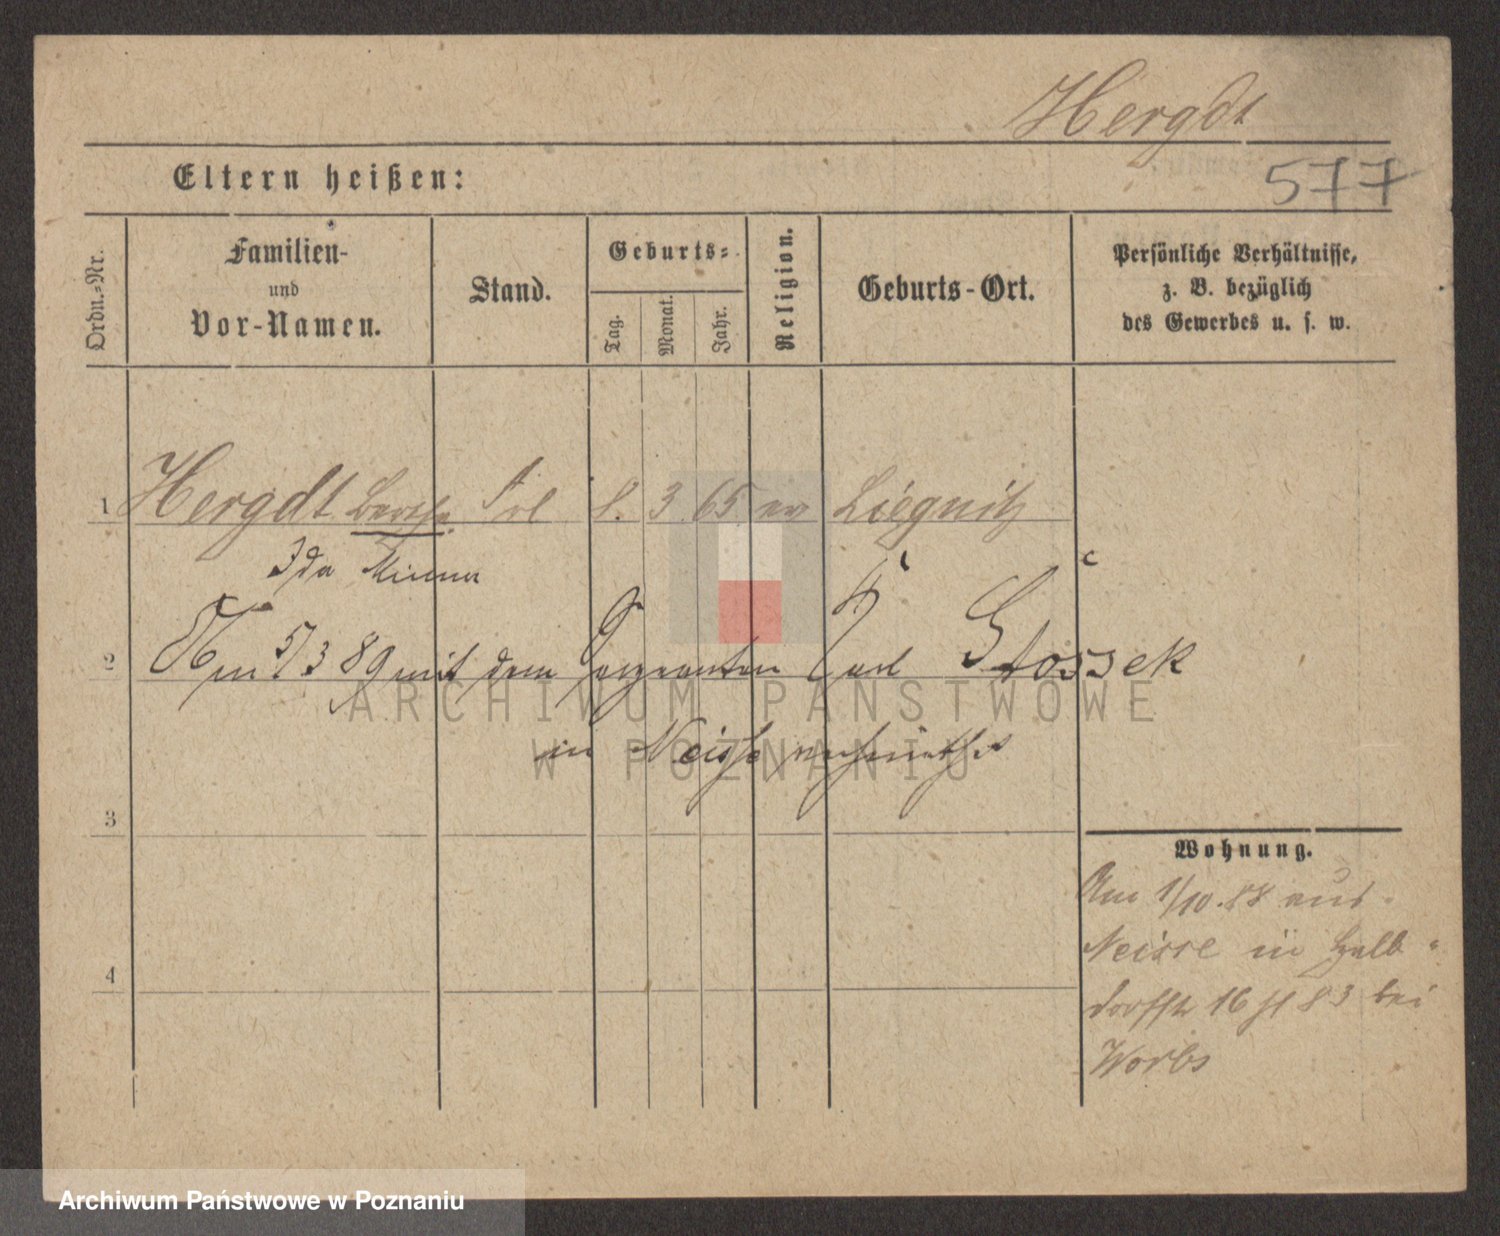 Hergdt
Eltern heißen:
577
Ordn.-Nr.
Familien-
und
Vor-Namen.
Stand.
Geburts-
Tag.
Monat.
Jahr.
Religion.
Geburts-Ort.
Persönliche Verhältnisse,
z. B. bezüglich
des Gewerbes u. s. w.
1 Hergdt Bertha Frl 8. 3 65 ev Liegnitz
Ida Minna
2 Am 5/3 89 mit dem Sergeanten Carl Stossek
in Neisse verheirathet
3
Wohnung.
Am 1/10.88 aus
Neisse in Halb
dorfstr 16 bei
Worbs
4
ARCHIWUM PAŃSTWOWE
W POZNANIU
Archiwum Państwowe w Poznaniu